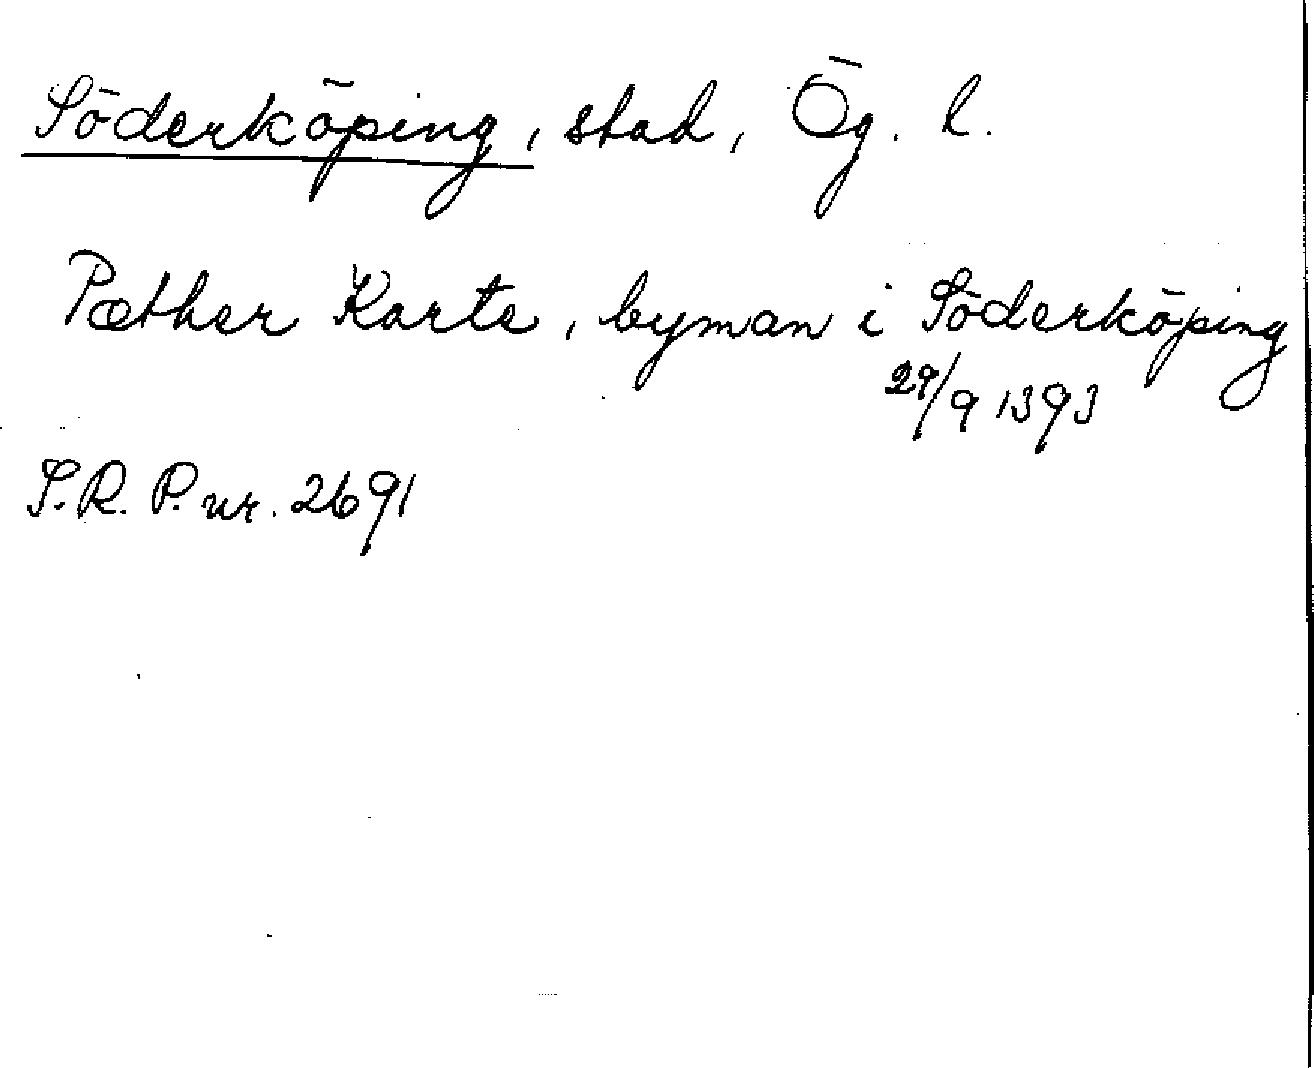 Söderköping, stad, Ög. l.
Pæther Karte, byman i Söderköping
29/9 1393
S.R.P. nr. 2691